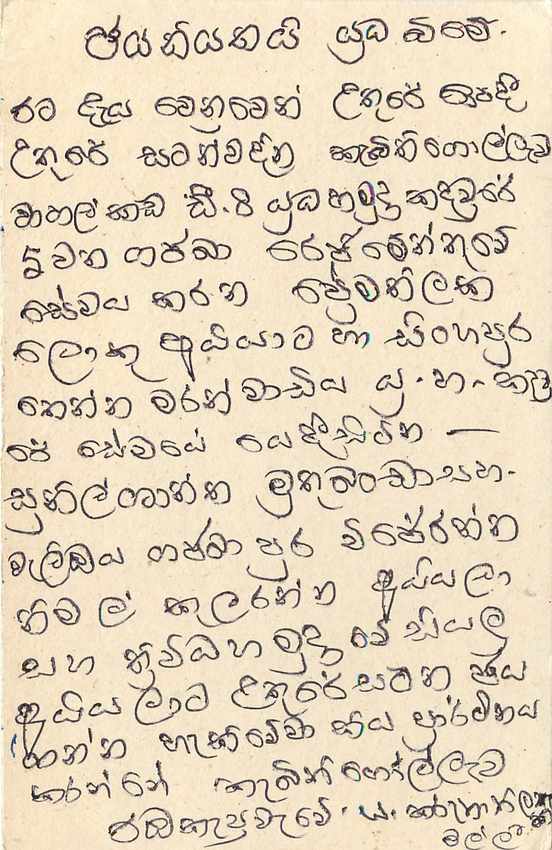 ජයනියතයි යුධ බිමේ.
රට දැය වෙනුවෙන් උතුරේ සැපදී
උතුරේ සටන්වදින කැබිතිගොල්ලෑව
වාහල්කඩ ඩී.8 යුධ හමුදු කඳවුරේ
5 වන ගජබා රෙජිමේන්තුවේ
සේවය කරන ප්‍රේමතිලක
ලොකු අයියාට හා සිංහපුර
තෙන්න මරන් වාඩිය යු.හ. කඳවු
රේ සේවයේ යෙදීසිටින —
සුනිල්ශාන්ත මුතුබංඩා සහ.
වැලිඔය ගජබා පුර විජේරත්න
නිමල් කුලරත්න අයියලා
සහ ත්‍රිවිධහමුදාවේ සියලු
අයියලාට උතුරේ සටන ජය
ගන්න හැකිවේවා කියා ප්‍රාර්ථනය
කරන්නේ කැබිතිගොල්ලෑව
රඹකැපුවැවේ. ය.
මල්ලී